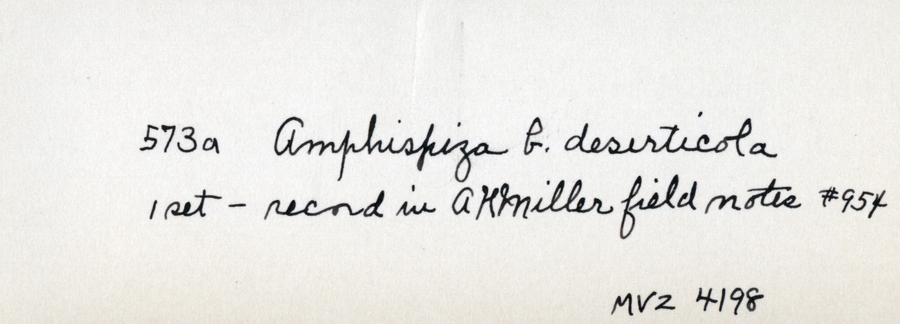 573a Amphispiza b. deserticola
1 set - record in AHMiller field notes #954
MVZ 4198